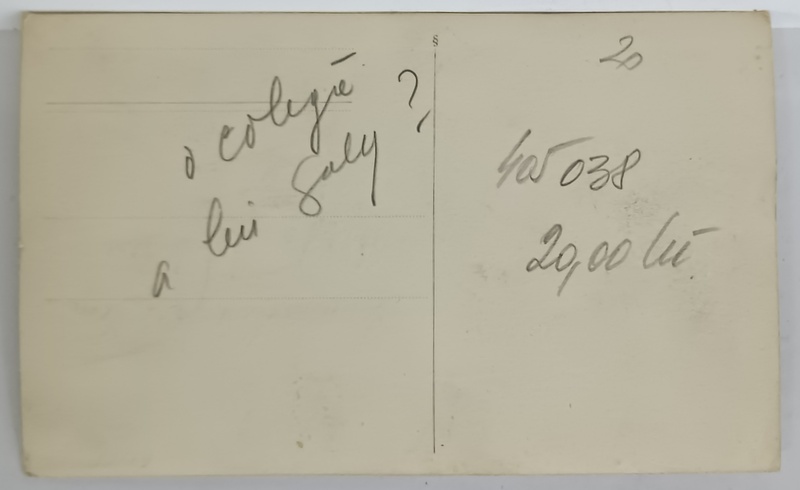 o colegă
a lui Galy ?
§
20
405 038
20,00 lei